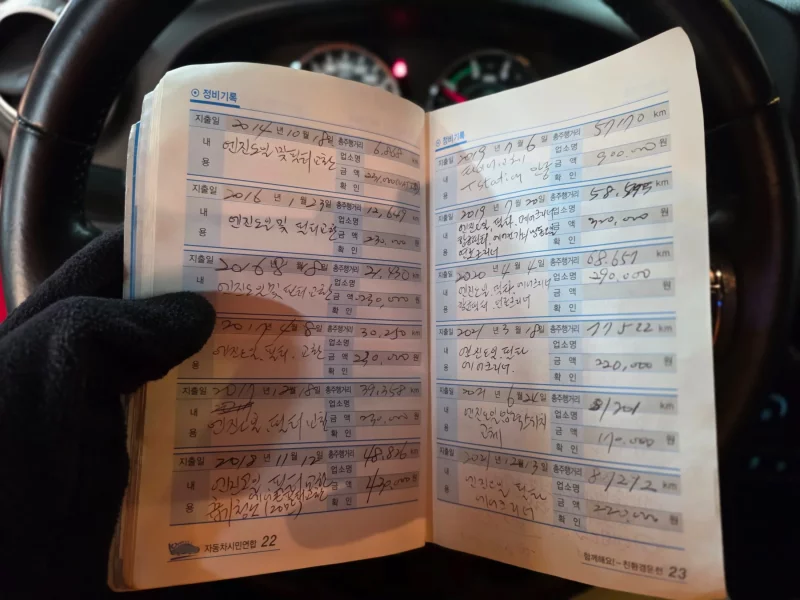 정비기록
지출일 2014년 10월 18일 총주행거리 6.868 km
내 엔진오일 및 필터교환 업소명
용 금 액
확 인
지출일 2016년 1월 23일 총주행거리 12,647 km
내 엔진오일 및 필터교환 업소명
용 금 액 230.000원
확 인
2016년 8월 8일 총주행거리 21,430 km
내 엔진오일 및 필터교환 업소명
용 금 액 230,000원
확 인
2017년 4월 8일 총주행거리 30.250 km
내 엔진오일, 필터, 교환 업소명
용 금 액 230,000원
확 인
지출일 2017년 12월 18일 총주행거리 39,358 km
내 업소명
용 엔진오일, 필터교환 금 액 230.000원
확 인
지출일 2018년 11월 12일 총주행거리 48,826 km
내 엔진오일 필터교환 업소명
용 금 액 420.000원
확 인
자동차시민연합 22
정비기록
지출일 2019년 7월 6일 총주행거리 57170 km
내 업소명
용 금 액 900.000원
확 인
지출일 2019년 7월 20일 총주행거리 58.595 km
내 엔진오일, 필타, 업소명
용 금 액 300,000원
연료크리너 확 인
지출일 2020년 4월 4일 총주행거리 68.657 km
내 엔진오일, 필타, 에어크리너 업소명
용 금 액 290.000원
확 인
지출일 2021년 3월 18일 총주행거리 77522 km
내 엔진오일, 필타 업소명
용 에어크리너. 금 액 220,000원
확 인
지출일 2021년 6월 24일 총주행거리 81201 km
내 업소명
용 교체 금 액 170.000원
확 인
지출일 2021년 12월 3일 총주행거리 87272 km
내 엔진오일 필타 업소명
용 에어크리너 금 액 220,000원
확 인
함께해요!~ 친환경운전 23